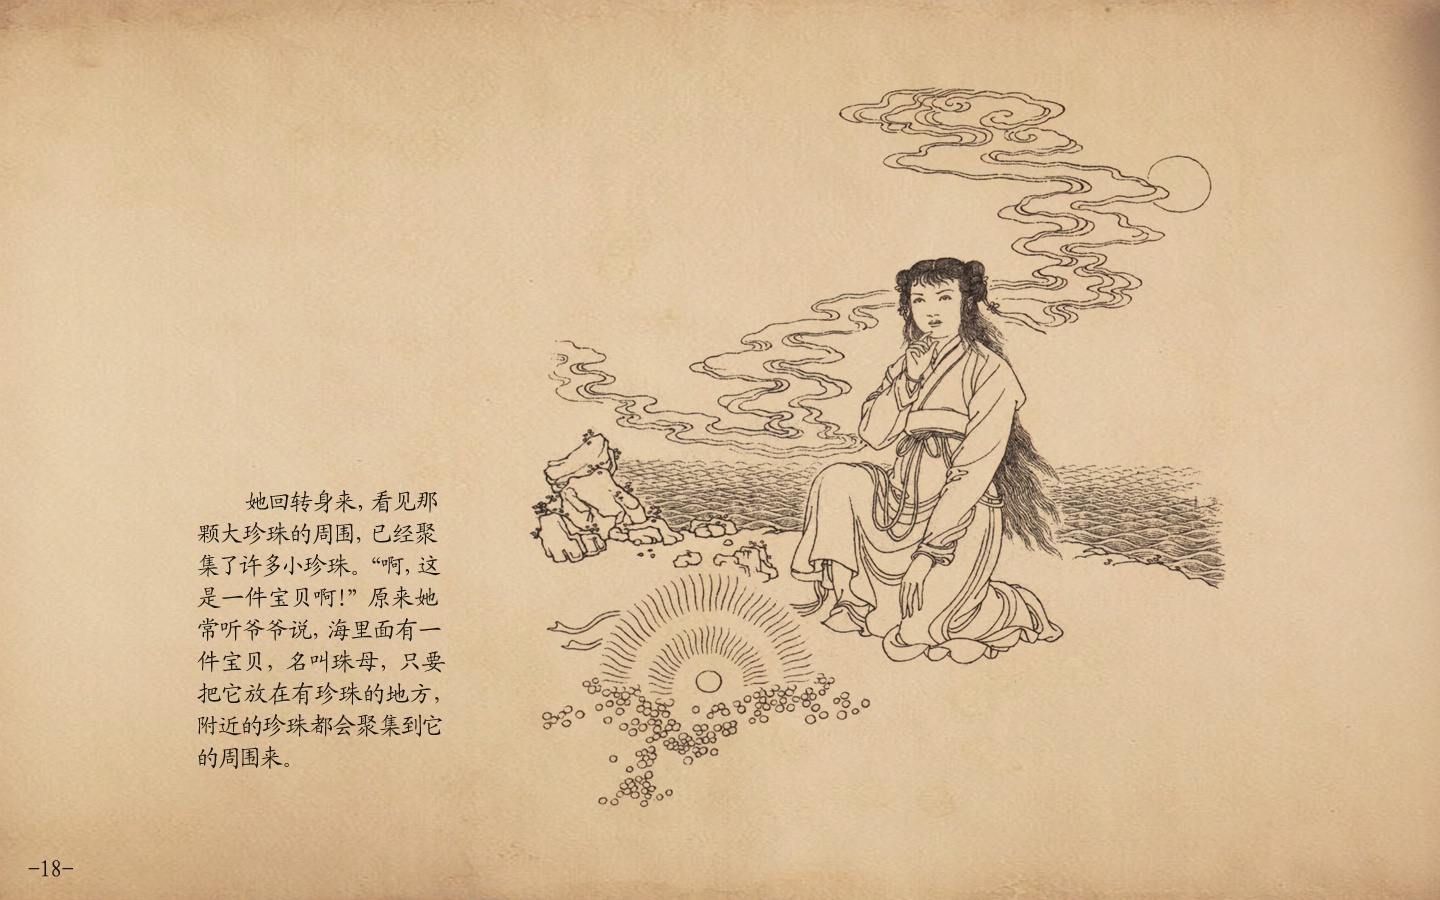 她回转身来, 看见那
颗大珍珠的周围, 已经聚
集了许多小珍珠。“啊, 这
是一件宝贝啊!” 原来她
常听爷爷说, 海里面有一
件宝贝, 名叫珠母, 只要
把它放在有珍珠的地方,
附近的珍珠都会聚集到它
的周围来。
-18-